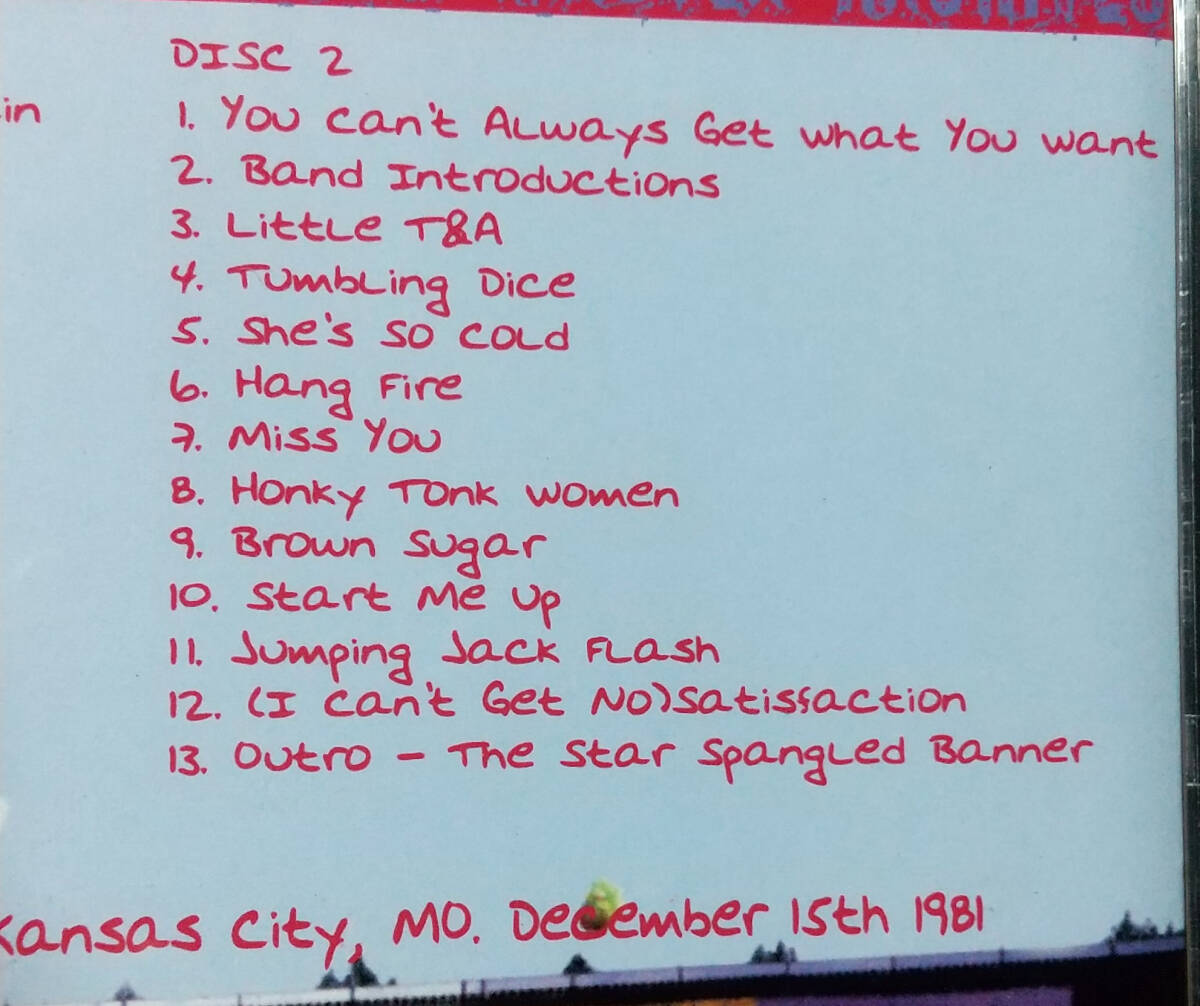 DISC 2
in
1. You can't Always Get what You want
2. Band Introductions
3. Little T&A
4. Tumbling Dice
5. She's So Cold
6. Hang Fire
7. Miss You
8. Honky Tonk Women
9. Brown Sugar
10. Start Me Up
11. Jumping Jack Flash
12. (I Can't Get No)Satisfaction
13. Outro - The Star Spangled Banner
Kansas City, MO. December 15th 1981